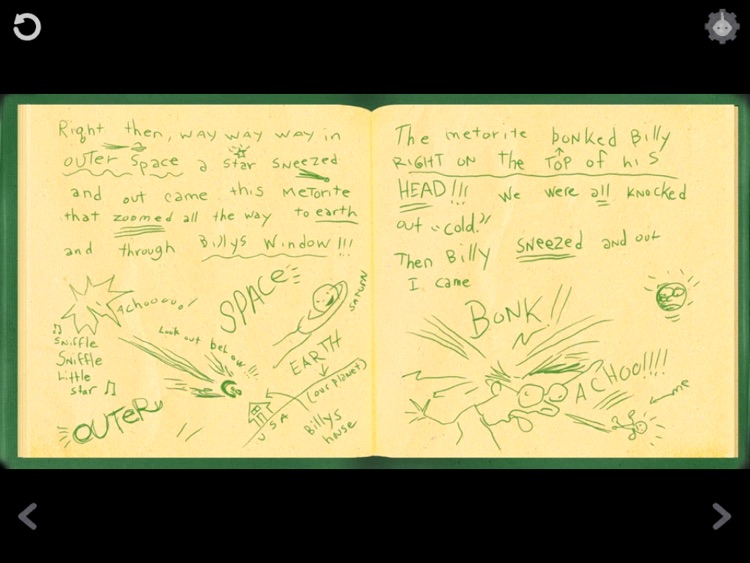 Right then, way way way in
outer space a star sneezed
and out came this metorite
that zoomed all the way to earth
and through Billys window!!!
Achooooo!
SPACE
SATURN
♫
Sniffle
Sniffle
Little
star ♫
Look out below!!
EARTH
(our planet)
OUTER
USA
Billys
house
The metorite bonked Billy
RIGHT ON the TOP of his
HEAD!!! We were all knocked
out "cold."
Then Billy sneezed and out
I came
BONK!!
ACHOO!!!!
me